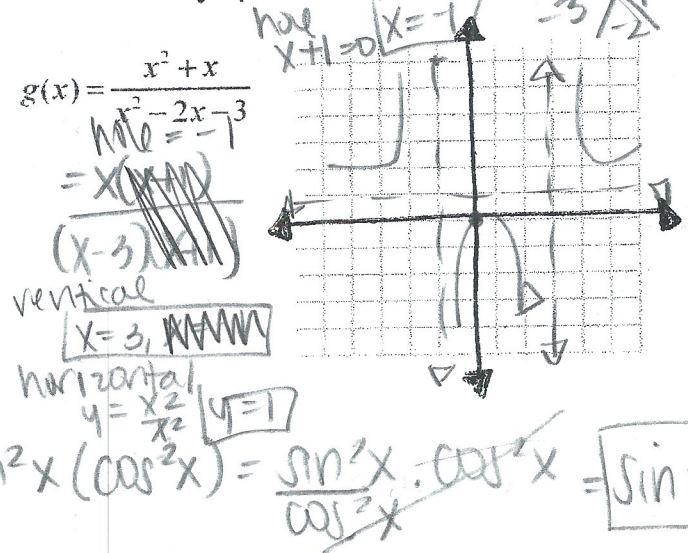 hole x=-1
x+1=0
-3 /\ -2
g(x) = x² + x / x² - 2x - 3
hole = -1
= x(x+1) / (x-3)(x+1)
vertical
x=3,
horizontal
y = x² / x² y=1
²x (cos²x) = sin²x / cos²x · cos²x = sin